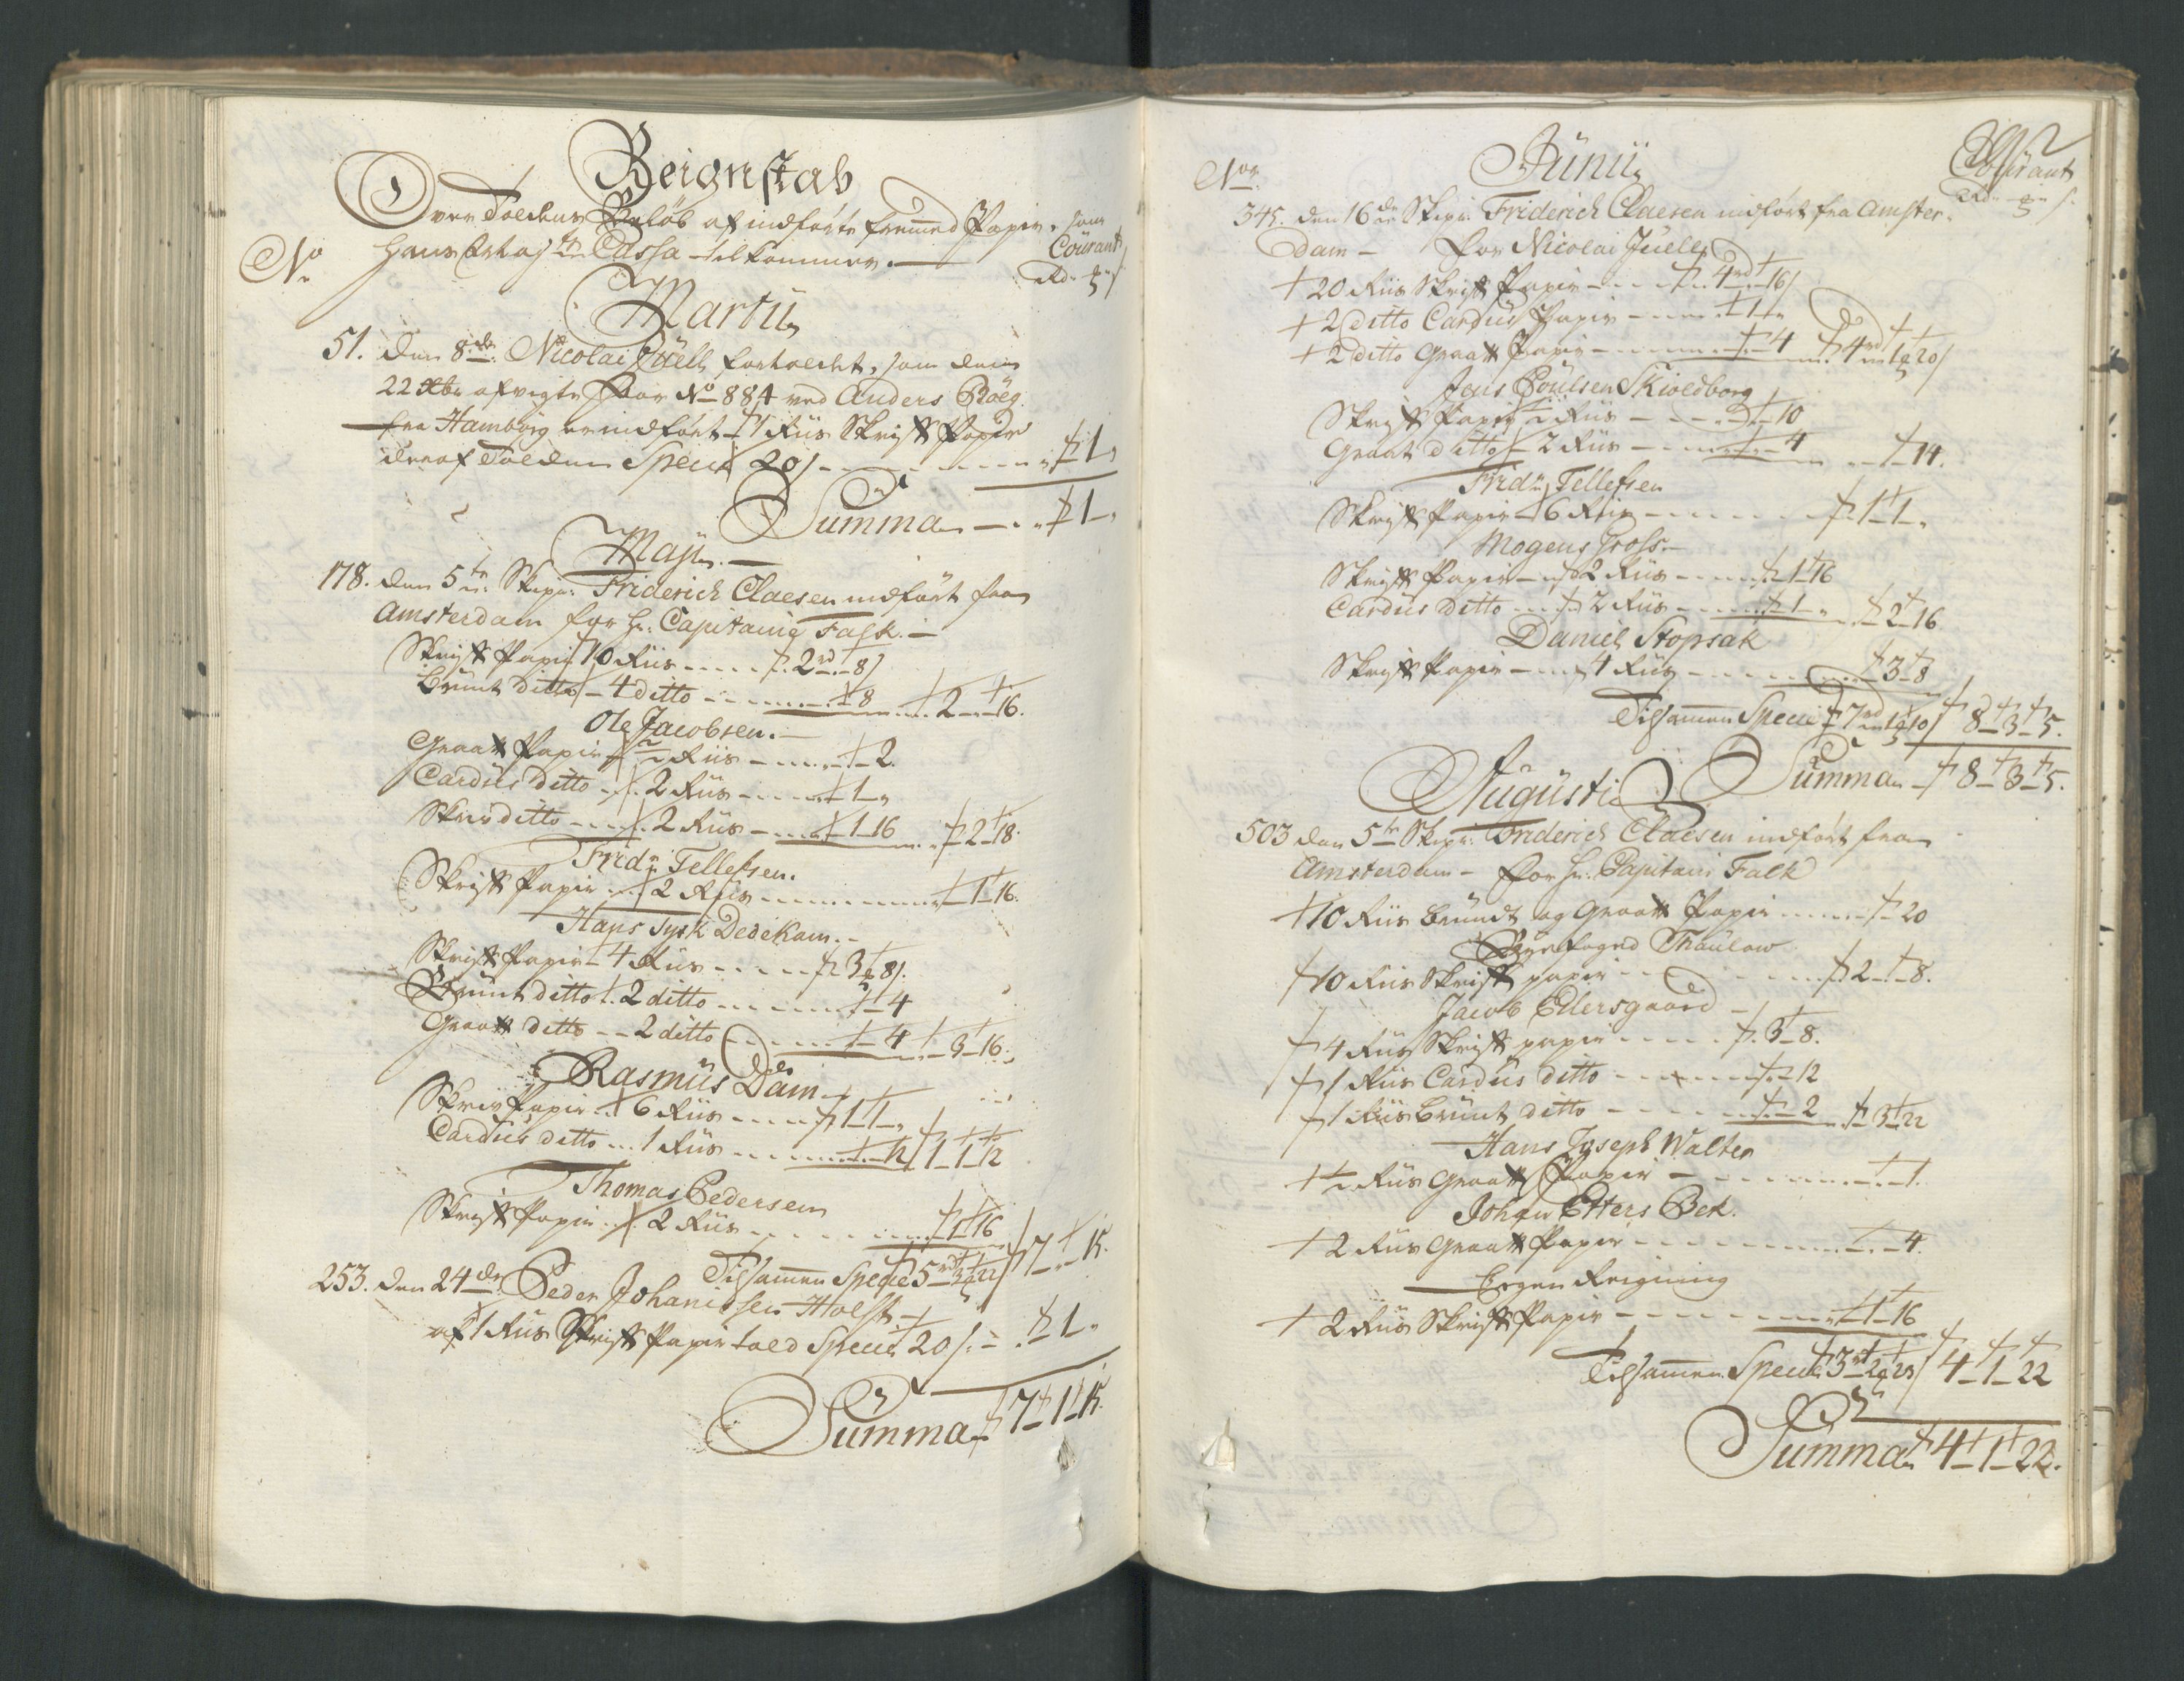 Reignskab
Over Toldens Beløb af indførte fremmed Papir, som
No Hans Mayts Cassa tilkommer. Courant
Rd
Martii
51. Den 8de Nicolai Juell fortoldet, som den
22 Xbr afvigte Aar No 884 ved Anders Röeg
fra Hamborg er indført 1 Riis Skrift Papir
deraf Tolden Specie 20 s - 1 -
Summa - 1 -
Maji
178. den 5te Skipr: Friderich Claesen indført fra
Amsterdam for Hr: Capitaine Falk. -
Skrift Papir 10 Riis - 2rd - 8 s
Brunt ditto - 4 ditto - 8 - 2 - 16.
Ole Jacobsen. -
Graat Papir Riis - 2.
Cardus ditto - 2 Riis - 1 -
Skriv ditto - 2 Riis - 1 - 16 - 2 - 18.
Fridr Tellefsen.
Skrift Papir - 2 Riis - 1 - 16.
Hans Tysk Dedekam. -
Skrift Papir - 4 Riis - 3 - 8 s.
Brunt ditto - 2 ditto - 4
Graat ditto - 2 ditto - 4 - 3 - 16.
Rasmus Dam
Skriv Papir - 6 Riis - 1 - 1 -
Cardus ditto - 1 Riis - 12 1 - 1 - 12
Thomas Pedersen
Skrift Papir - 2 Riis - 1 - 16
Tilsamen Specie 5rd 3 22 7 - - 15.
253. den 24de Peder Johannissen Holst
af 1 Riis Skrift Papir told Specie 20 s - 1 -
Summa 7 - 1 - 15.
Nor Junii Courant
Rd
345. den 16de Skipr: Friderich Claesen indført fra Amster-
dam - for Nicolai Juell
20 Riis Skrift Papir - 4rd - 16 s
2 ditto Cardus Papir - 1 -
2 ditto Graat Papir - 4 4rd 1 20 s
Jens Poulsen Skioldborg
Skrift Papir Riis - 10
Graat ditto - 2 Riis - 4 - 14.
Fridr Tellefsen
Skrift Papir - 6 Riis - 1 - 1 -
Mogens Gross -
Skrift Papir - 2 Riis - 1 - 16
Cardus ditto - 2 Riis - 1 - 2 - 16
Daniel Stopsak
Skrift Papir - 4 Riis - 3 - 8
Tilsamen Specie 7rd 1 10 8 - 3 - 5.
Summa - 8 - 3 - 5.
Augusti
503 den 5te Skipr: Friderich Claesen indført fra
Amsterdam - for Hr: Capitain Falk
10 Riis Brundt og Graat Papir - 20
Byefoged Thaulow
10 Riis Skrift papir - 2 - - 8.
Jacob Ellersgaard
4 Riis Skrift papir - 3 - 8.
1 Riis Cardus ditto - 12
1 Riis Brunt ditto - 2 3 - 22
Hans Joseph Walter
½ Riis Graat Papir - 1.
Johan Etters Bek.
2 Riis Graat Papir - 4.
Eegen Reigning
2 Riis Skrift Papir - 1 - 16
Tilsamen Specie 3rd 2 23 4 - 1 - 22
Summa 4 - 1 - 22.